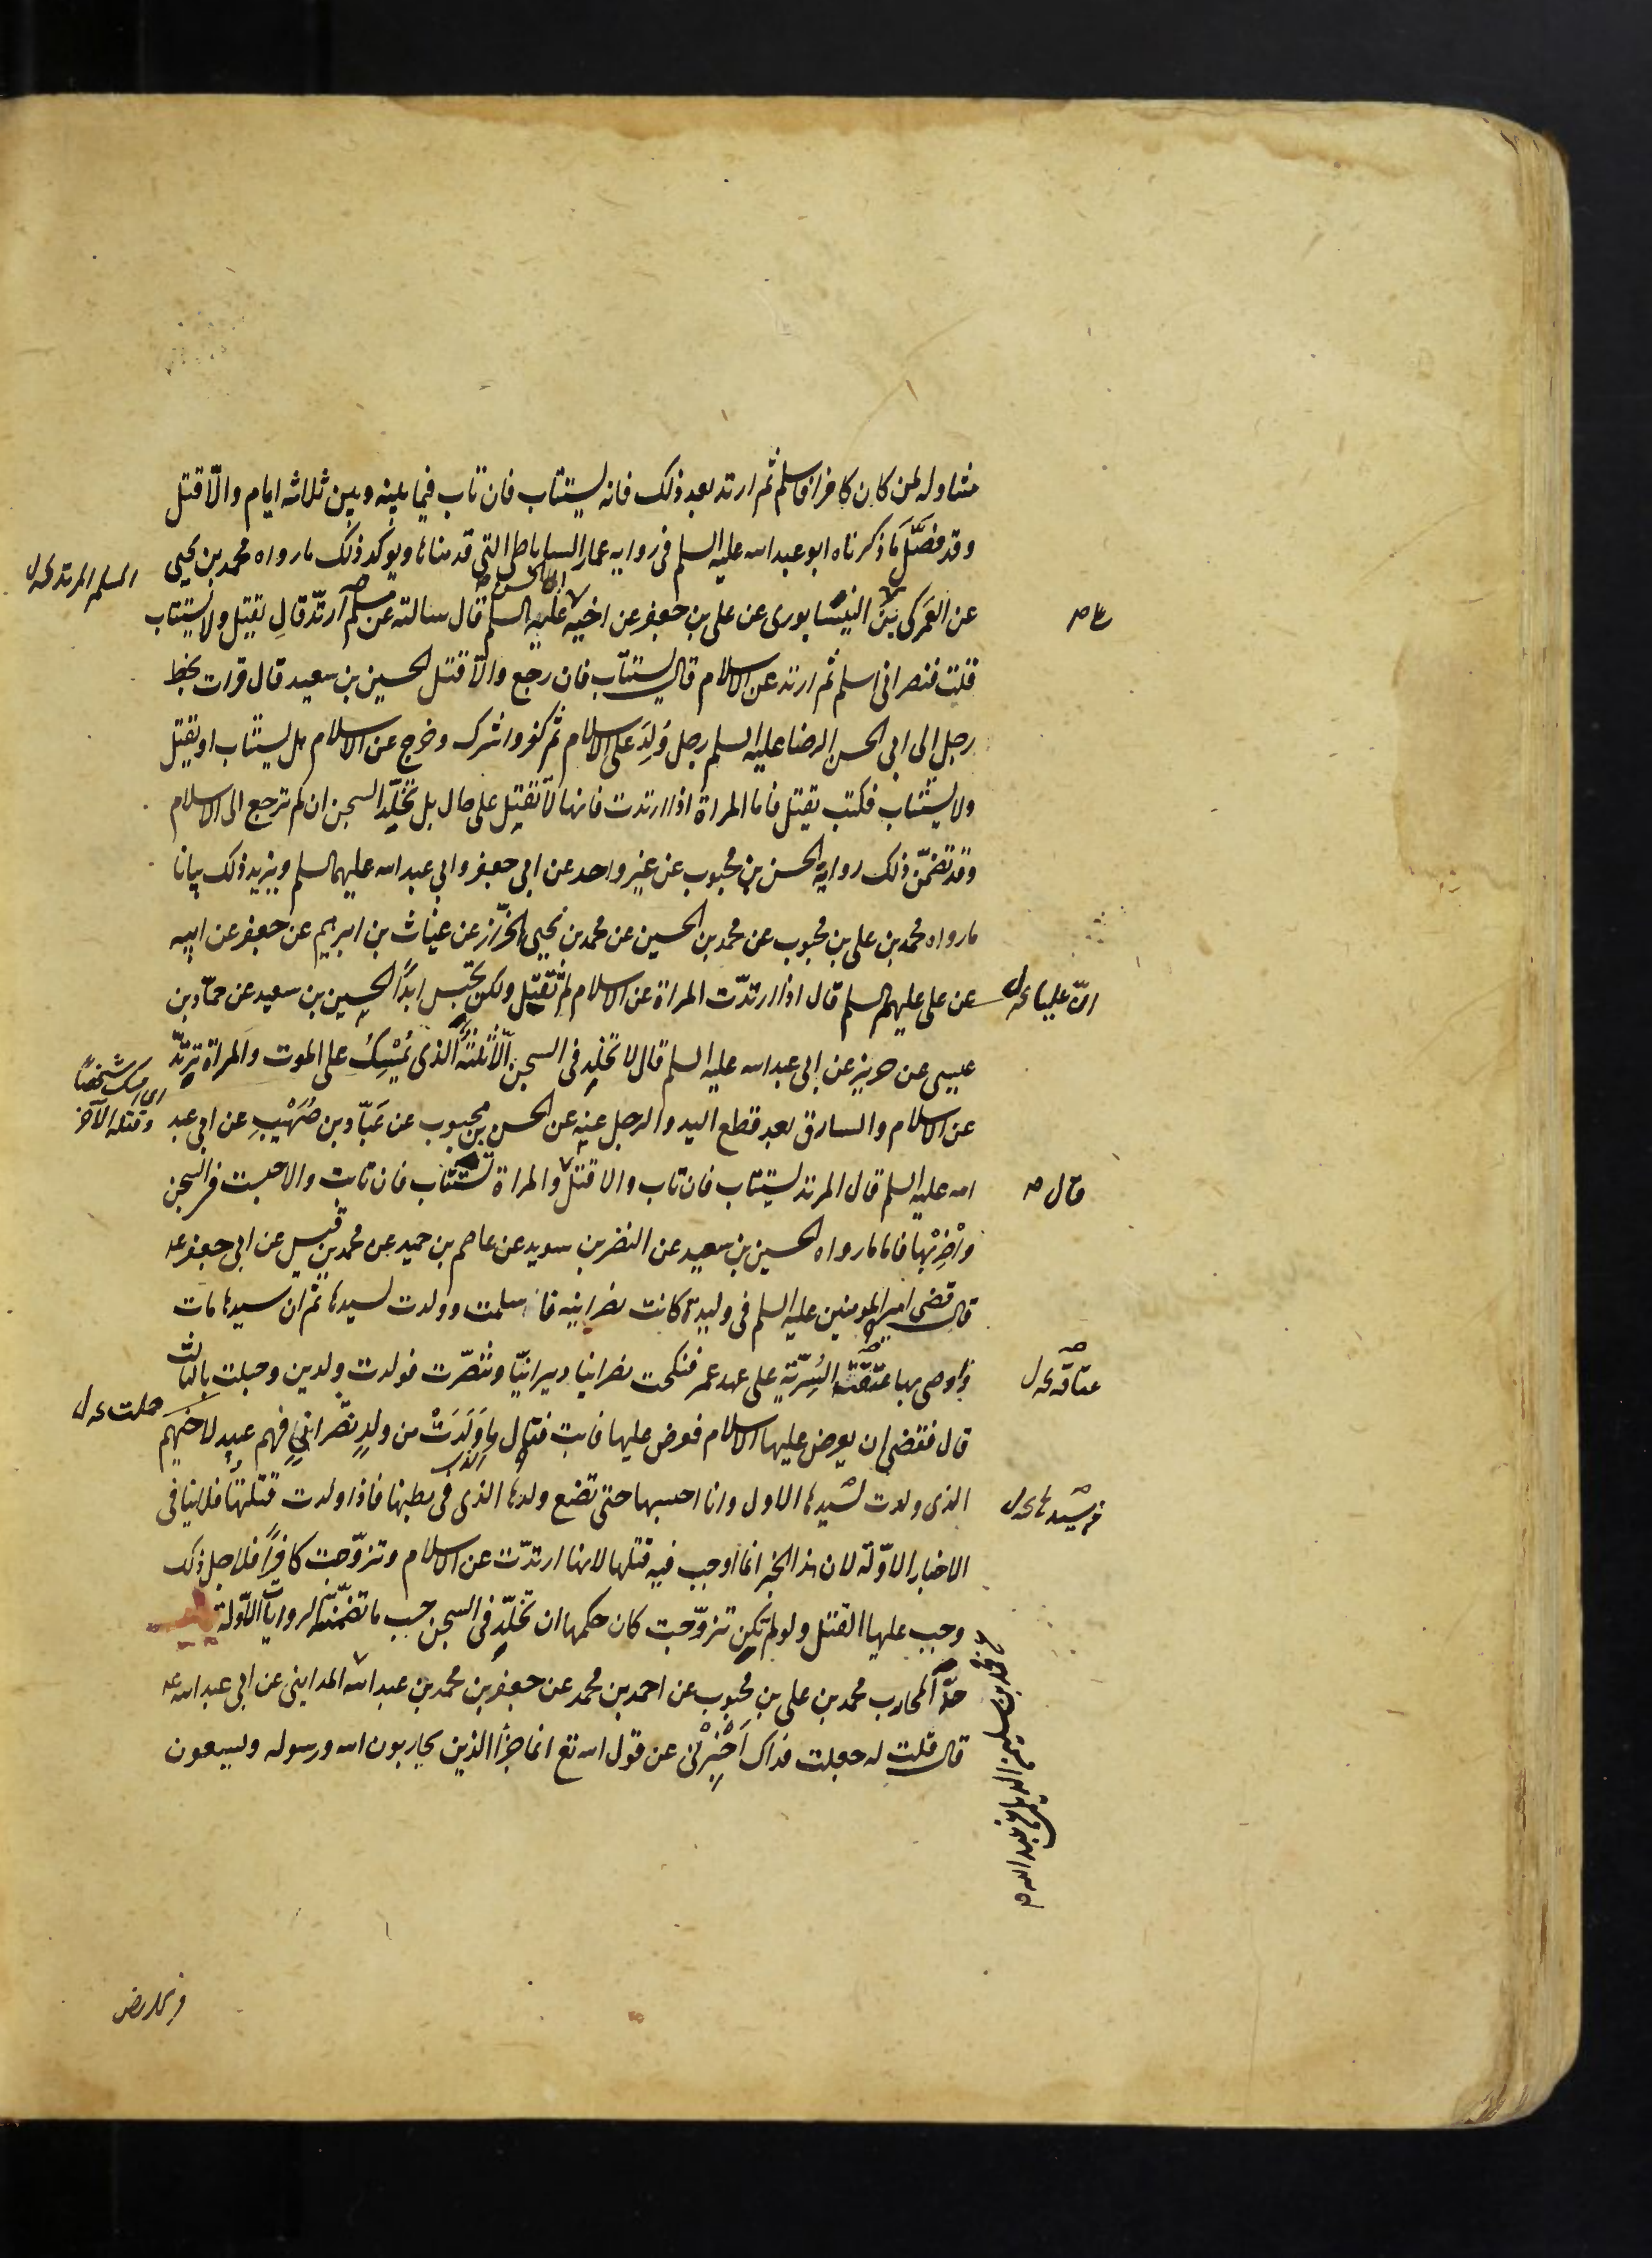 متناوله لمن كان كافرا فاسلم ثم ارتد بعد ذلك فانه يستتاب فان تاب فيما بينه وبين ثلاثه ايام والّا قتل
وقد فصّل ما ذكرناه ابو عبد الله عليه السلم فى روايه عمار الساباطى التى قدمناها ويوكد ذلك ما رواه محمد بن يحيى
عن العمركى بن النيسابورى عن على بن جعفر عن اخيه عليه السلم قال سالته عن مسلم ارتدّ قال يقتل ولا يستتاب
قلت فنصرانى اسلم ثم ارتد عن الاسلام قال يستتاب فان رجع والّا قتل الحسين بن سعيد قال قرات بخط
رجل الى ابى الحسن الرضا عليه السلم رجل وُلِدَ على الاسلام ثم كفر واشرك وخرج عن الاسلام هل يستتاب او يقتل
ولا يستتاب فكتب يقتل فاما المراة اذا ارتدت فانها لا تقتل على حال بل تخلّد السجن ان لم ترجع الى الاسلام
وقد تضمّن ذلك روايه الحسن بن محبوب عن غير واحد عن ابى جعفر وابى عبد الله عليهما السلم ويزيد ذلك بيانا
ما رواه محمد بن على بن محبوب عن محمد بن الحسين عن محمد بن يحيى الخزّاز عن غياث بن ابرهيم عن جعفر عن ابيه
عن على عليهم السلم قال اذا ارتدّت المراة عن الاسلام لم تقتل ولكن تحبس ابدًا الحسين بن سعيد عن حمّاد بن
عيسى عن حريز عن ابى عبد الله عليه السلم قال لا تخلد فى السجن الّا ثلثة الذى يُمْسِكُ على الموت والمراة ترتدّ
عن الاسلام والسارق بعد قطع اليد والرجل عنه عن الحسن بن محبوب عن عَبّاد بن صُهَيْبٍ عن ابى عبد
الله عليه السلم قال المرتد يستتاب فان تاب والا قتل والمراة تستتاب فان تابت والا حبست فى السجن
واُضِرّ بها فاما ما رواه الحسين بن سعيد عن النضر بن سويد عن عاصم بن حميد عن محمد بن قيس عن ابى جعفر عه
قال قضى امير المومنين عليه السلم فى وليدة كانت نصرانيه فاسلمت وولدت لسيدها ثم ان سيدها مات
واوصى بها عتقة السُرّيّة على عهد عمر فنكحت نصرانيا ديرانيّا وتنصّرت فولدت ولدين وحبلت بالثالث
قال فقضى ان يعرض عليها الاسلام فعرض عليها فابت فقال ما وَلَدَتْ من ولدٍ نصرانيٍ فهم عبيد لاخيهم
الذى ولدت لسيدها الاول وانا احبسها حتى تضع ولدها الذى فى بطنها فاذا ولدت قتلتها فلا ينافى
الاخبار الاوّلة لان هذا الخبر انما اوجب فيه قتلها لانها ارتدّت عن الاسلام وتزوّجت كافرًا فلاجل ذلك
وجب عليها القتل ولو لم تكن تزوّجت كان حكمها ان تخلّد فى السجن حسب ما تضمّنته الروايات الاوّلة
حدّ المحارب محمد بن على بن محبوب عن احمد بن محمد عن جعفر بن محمد بن عبد الله المداينى عن ابى عبد الله عه
قال قلت له جعلت فداك اَخْبِرْنى عن قول الله تع انما جزاؤ الذين يحاربون الله ورسوله ويسعون
المسلم المرتد
انّ عليا
اى امسك شخصا
وقتله الآخر
قال
عتاقه
حملت
لسيدها
محمد بن سليمن الديلمى عن عبيد الله